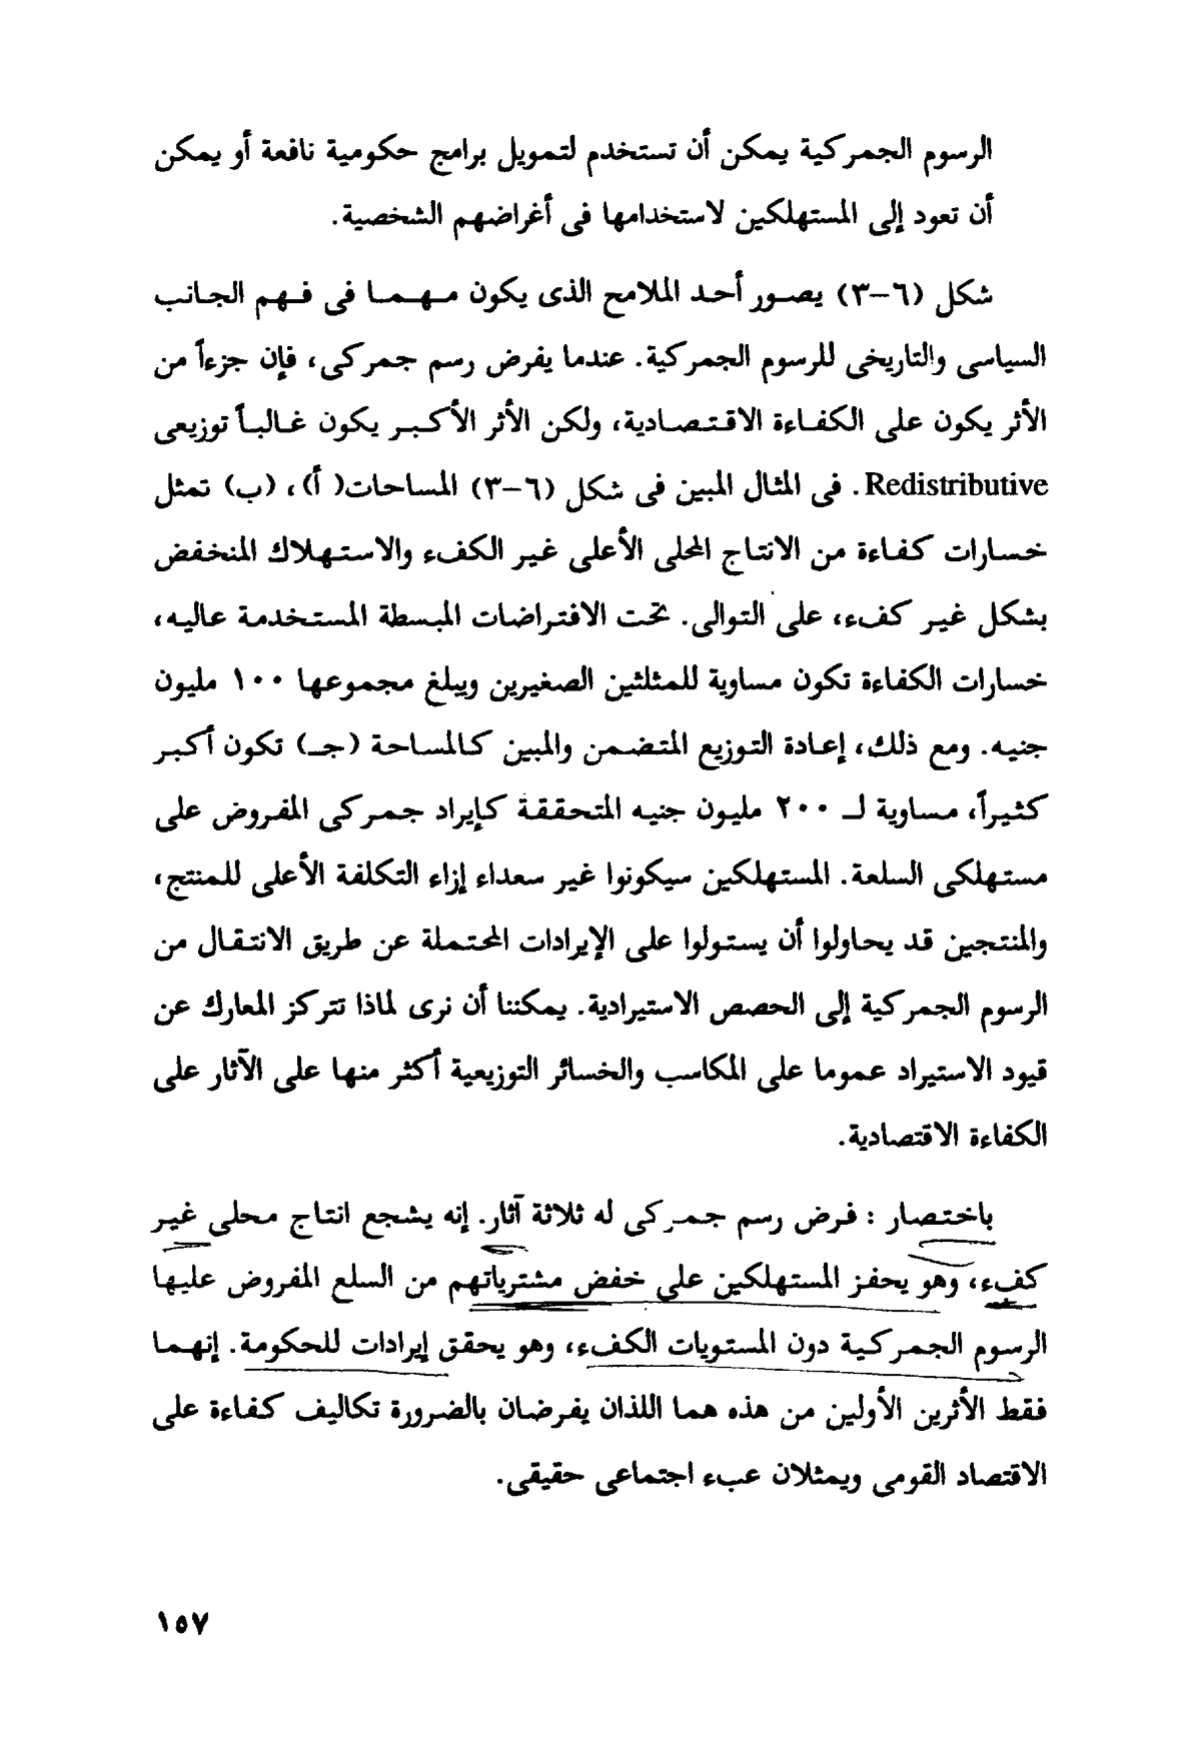 الرسوم الجمركية يمكن أن تستخدم لتمويل برامج حكومية نافعة أو يمكن
أن تعود إلى المستهلكين لاستخدامها فى أغراضهم الشخصية.
شكل (٦–٣) يصور أحد الملامح الذى يكون مهما فى فهم الجانب
السياسى والتاريخى للرسوم الجمركية. عندما يفرض رسم جمركى، فإن جزءاً من
الأثر يكون على الكفاءة الاقتصادية، ولكن الأثر الأكبر يكون غالباً توزيعى
Redistributive. فى المثال المبين فى شكل (٦–٣) المساحات( أ)، (ب) تمثل
خسارات كفاءة من الانتاج المحلى الأعلى غير الكفء والاستهلاك المنخفض
بشكل غير كفء، على التوالى. تحت الافتراضات المبسطة المستخدمة عاليه،
خسارات الكفاءة تكون مساوية للمثلثين الصغيرين ويبلغ مجموعها ١٠٠ مليون
جنيه. ومع ذلك، إعادة التوزيع المتضمن والمبين كالمساحة (جـ) تكون أكبر
كثيراً، مساوية لـ ٢٠٠ مليون جنيه المتحققة كإيراد جمركى المفروض على
مستهلكى السلعة. المستهلكين سيكونوا غير سعداء إزاء التكلفة الأعلى للمنتج،
والمنتجين قد يحاولوا أن يستولوا على الإيرادات المحتملة عن طريق الانتقال من
الرسوم الجمركية إلى الحصص الاستيرادية. يمكننا أن نرى لماذا تتركز المعارك عن
قيود الاستيراد عموما على المكاسب والخسائر التوزيعية أكثر منها على الآثار على
الكفاءة الاقتصادية.
باختصار : فرض رسم جمركى له ثلاثة آثار. إنه يشجع انتاج محلى غير
كفء، وهو يحفز المستهلكين على خفض مشترياتهم من السلع المفروض عليها
الرسوم الجمركية دون المستويات الكفء، وهو يحقق إيرادات للحكومة. إنهما
فقط الأثرين الأولين من هذه هما اللذان يفرضان بالضرورة تكاليف كفاءة على
الاقتصاد القومى ويمثلان عبء اجتماعى حقيقى.
١٥٧